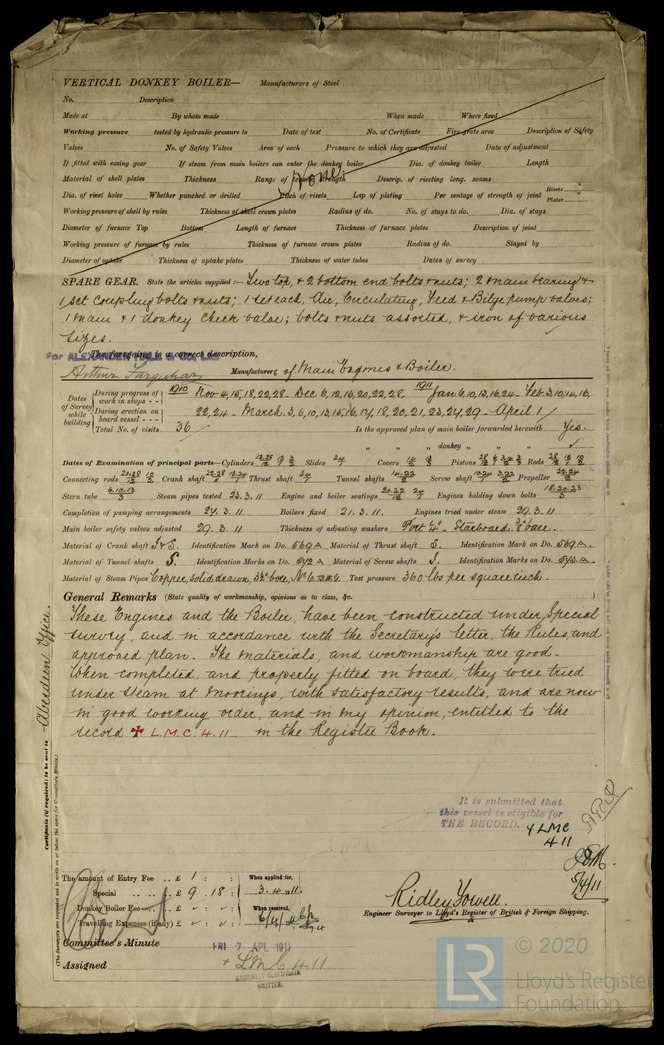 VERTICAL DONKEY BOILER— Manufacturers of Steel
No. Description
Made at By whom made When made Where fixed
Working pressure tested by hydraulic pressure to Date of test No. of Certificate Fire grate area Description of Safety
Valves No. of Safety Valves Area of each Pressure to which they are adjusted Date of adjustment
If fitted with easing gear If steam from main boilers can enter the donkey boiler Dia. of donkey boiler Length
Material of shell plates Thickness Range of tensile strength Descrip. of riveting long. seams
None
Dia. of rivet holes Whether punched or drilled Pitch of rivets Lap of plating Per centage of strength of joint Rivets Plates
Working pressure of shell by rules Thickness of shell crown plates Radius of do. No. of stays to do. Dia. of stays
Diameter of furnace Top Bottom Length of furnace Thickness of furnace plates Description of joint
Working pressure of furnace by rules Thickness of furnace crown plates Radius of do. Stayed by
Diameter of uptake Thickness of uptake plates Thickness of water tubes Dates of survey
SPARE GEAR. State the articles supplied:— Two top, & 2 bottom end bolts & nuts; 2 main bearing &
1 set coupling bolts & nuts; 1 set each, Air, Circulating, Feed & Bilge pump valves;
1 main & 1 donkey check valve; bolts & nuts assorted, & iron of various
sizes.
The foregoing is a correct description,
For ALEXANDER HALL & CO., LTD.
Arthur Farquhar Manufacturers of Main Engines & Boiler.
Dates of Survey while building
During progress of work in shops - - 1910 Nov 4, 15, 18, 22, 28 - Dec 6, 12, 16, 20, 22, 28, 1911 Jan 6, 10, 13, 16, 24 - Feb 3, 10, 14, 16,
During erection on board vessel - - - 22, 24 - March 3, 6, 10, 13, 15, 16, 17, 18, 20, 21, 23, 24, 29 - April 1
Total No. of visits 36 Is the approved plan of main boiler forwarded herewith Yes.
" " " donkey " "
Dates of Examination of principal parts—Cylinders Slides Covers Pistons Rods
Connecting rods Crank shaft Thrust shaft Tunnel shafts Screw shaft Propeller
Stern tube Steam pipes tested 23.3.11 Engine and boiler seatings Engines holding down bolts
Completion of pumping arrangements 24.3.11 Boilers fixed 21.3.11. Engines tried under steam 29.3.11
Main boiler safety valves adjusted 29.3.11 Thickness of adjusting washers Port Starboard
Material of Crank shaft I & S. Identification Mark on Do. 569A Material of Thrust shaft S. Identification Mark on Do. 569A.
Material of Tunnel shafts S. Identification Marks on Do. 572A Material of Screw shafts Identification Marks on Do.
Material of Steam Pipes Copper, solid drawn, Test pressure 360 lbs per square inch.
General Remarks (State quality of workmanship, opinions as to class, &c.)
These Engines and the Boiler, have been constructed under Special
survey, and in accordance with the Secretary's letter, the Rules, and
approved plan. The materials, and workmanship are good.
When completed, and properly fitted on board, they were tried
under steam at moorings, with satisfactory results, and are now
in good working order, and in my opinion, entitled to the
record ✠ L.M.C. 4.11 in the Register Book.
Certificate (if required) to be sent to Aberdeen Office.
(The Surveyors are requested not to write on or below the space for Committee's Minute.)
It is submitted that
this vessel is eligible for
THE RECORD. + LMC
4 11
7/4/11
The amount of Entry Fee .. £ 1 : : When applied for,
Special .. £ 9 . 18 : 3.4.11.
Donkey Boiler Fee .. £ : : When received,
Travelling Expenses (if any) £ : :
Ridley Howell.
Engineer Surveyor to Lloyd's Register of British & Foreign Shipping.
Committee's Minute FRI 7 APL 1911
Assigned + LMC 4 11
MACHINERY CERTIFICATE
WRITTEN.
LR © 2020
Lloyd's Register
Foundation